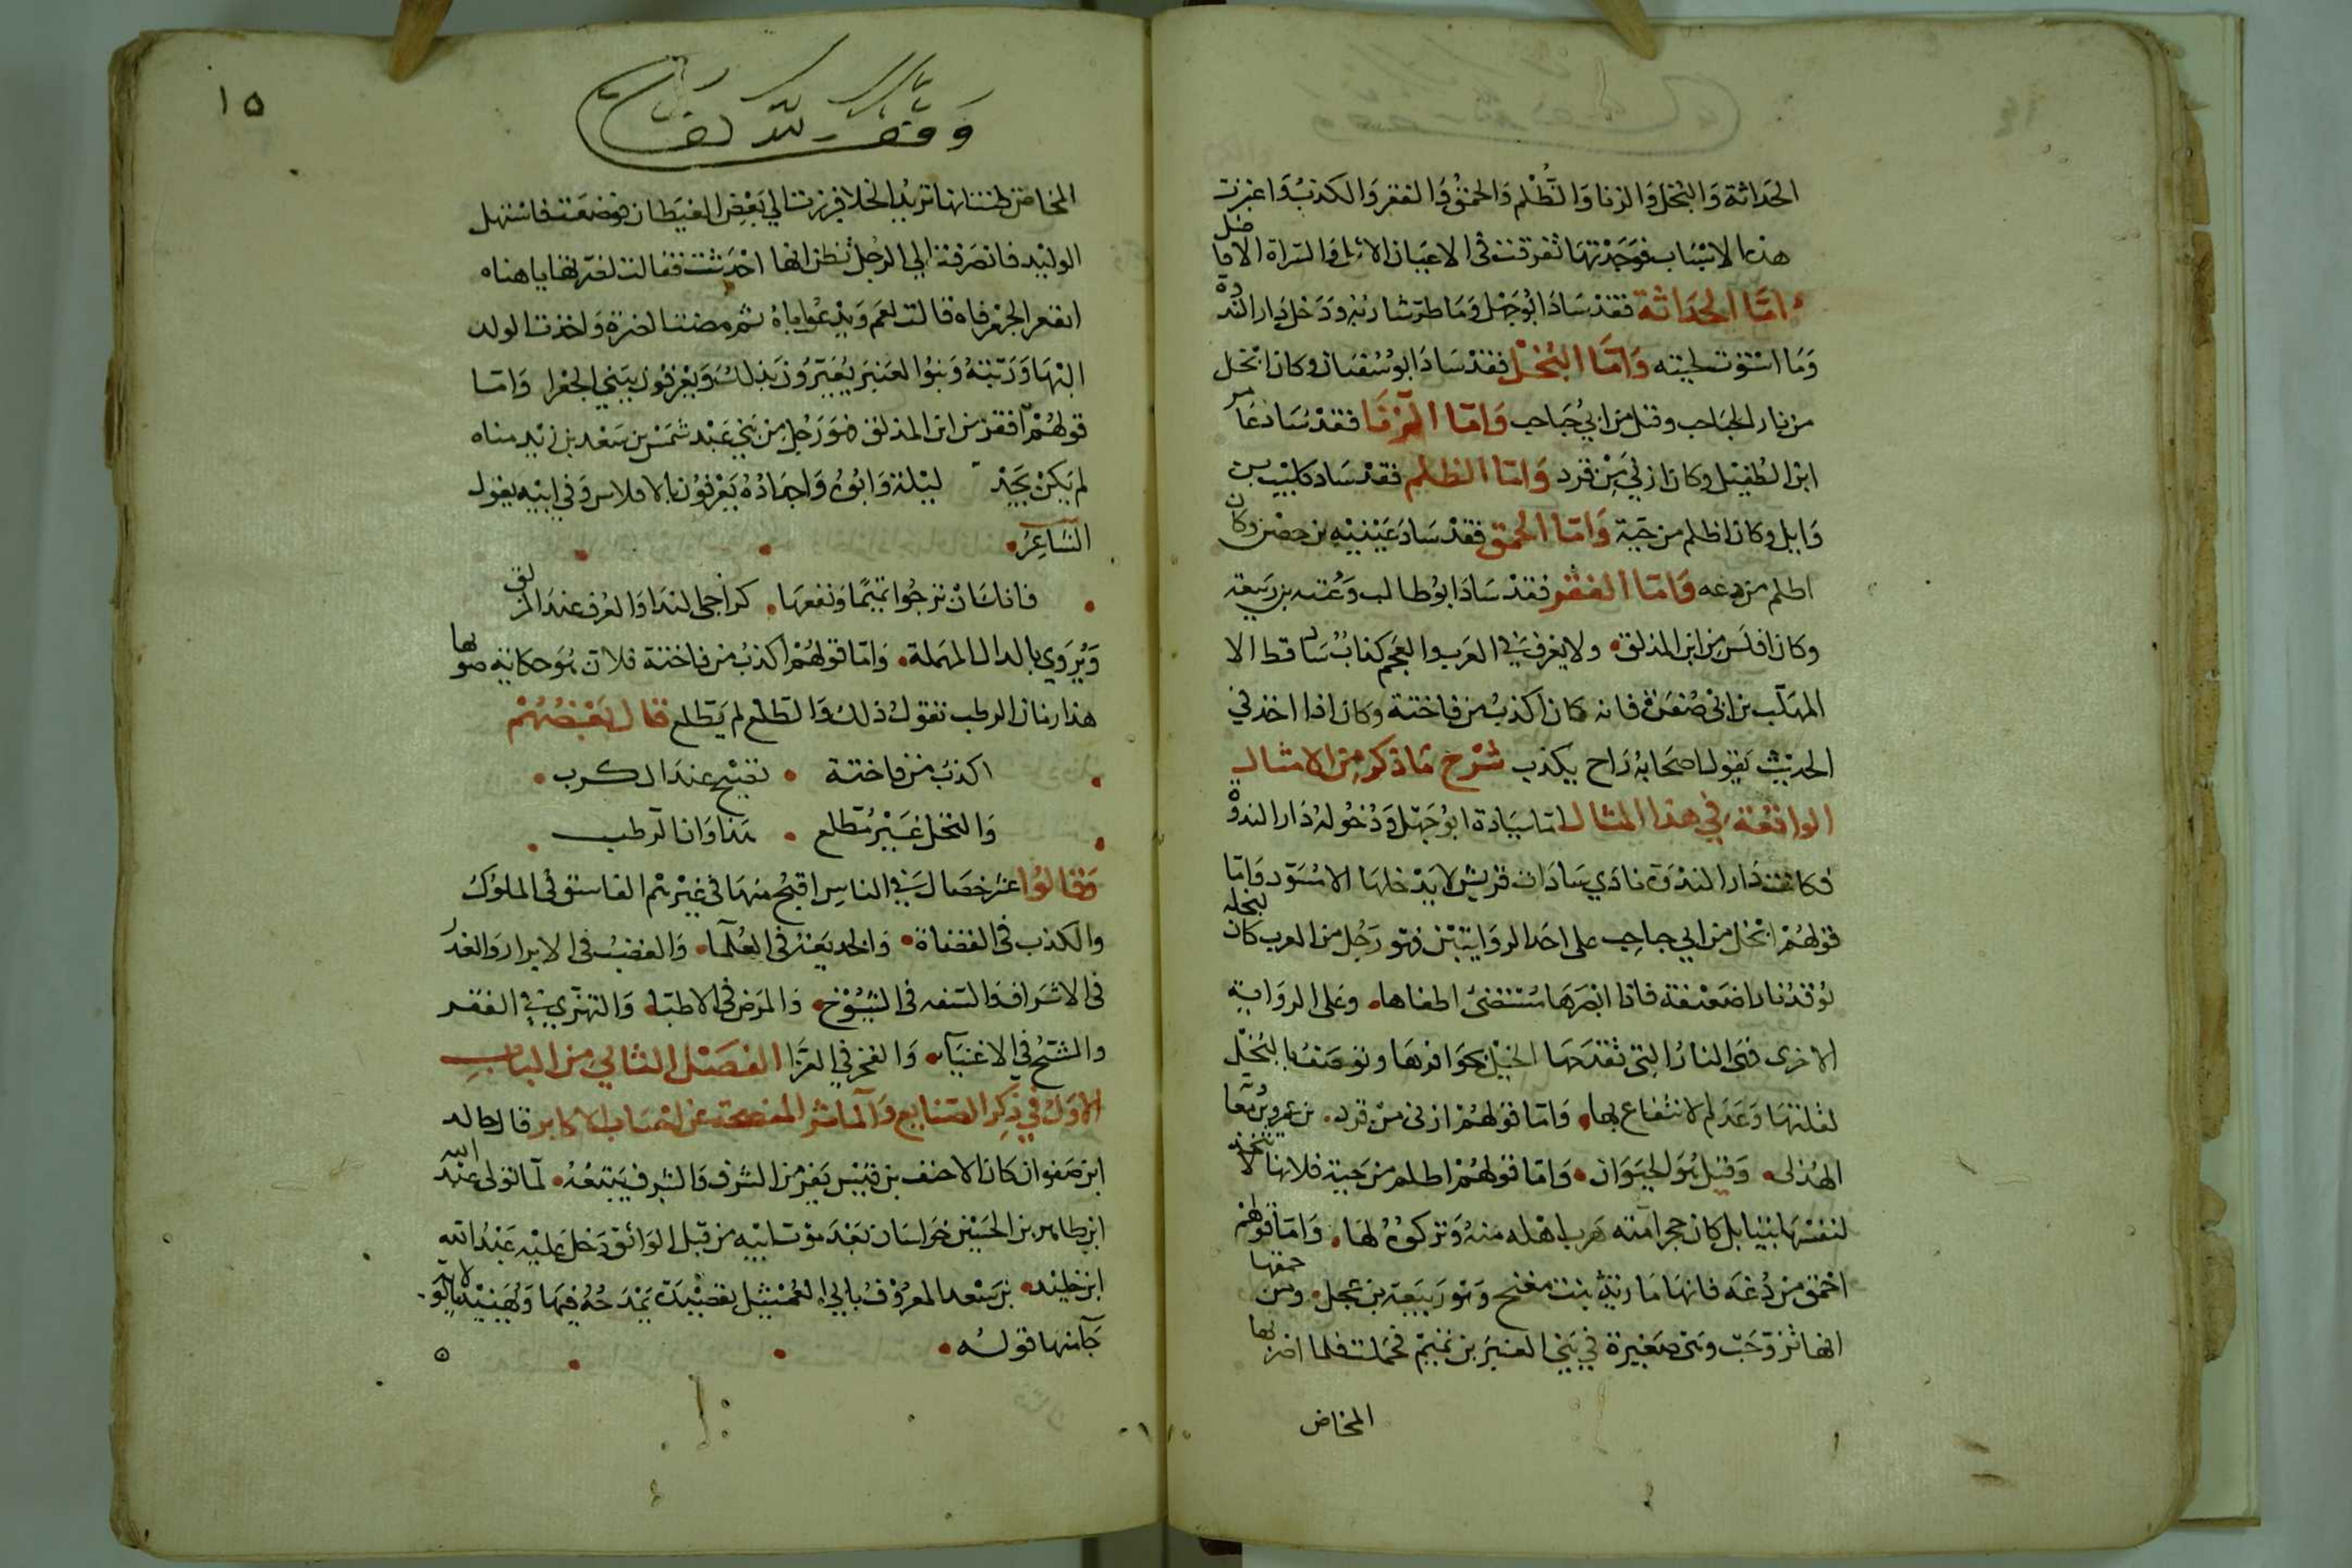 الحداثة والبخل والزنا والظلم والحمق والفقر والكذب واعتبرت
هذه الاسباب فوجدتها تفرقت في الاعيان الاول والسراة الافاضل
اما الحداثة فقد ساد ابو جهل وما طر شاربه ودخل دار الندوة
وما استوت لحيته واما البخل فقد ساد ابو سفيان وكان ابخل
من نار الحباحب وقيل من ابي حباحب واما الزنا فقد ساد عامر
ابن الطفيل وكان ازني من قرد واما الظلم فقد ساد كليب بن
وايل وكان اظلم من حية واما الحمق فقد ساد عيينيه بن حصن وكان
اظلم من دغه واما الفقر فقد ساد ابو طالب وعتبه بن ربيعة
وكان افلس من ابن المذلق ولا يعرف في العرب والعجم كذاب ساد قط الا
المهلب بن ابي صفرة فانه كان اكذب من فاختة وكان اذا اخذ في
الحديث يقول اصحابه راح يكذب شرح ما ذكر من الامثال
الواقعة في هذا المثال اما سيادة ابو جهل ودخوله دار الندوة
فكانت دار الندوة نادي سادات قريش لا يدخلها الا مسود واما
قولهم ابخل من ابي حباحب على احد الروايتين فهو رجل من العرب كان لبخله
يوقد نارا ضعيفة فاذا ابصرها مستضئ اطفاها وعلى الرواية
الاخرى فهي النار التي تقدحها الخيل بحوافرها وتوصف بالبخل
لقلتها وعدم الانتفاع بها واما قولهم ازني من قرد بن عمرو بن معا
الهذلي وقيل هو الحيوان واما قولهم اظلم من حية فلانها لا تتخذ
لنفسها بيتا بل كل حجر امته هرب اهله منه وتركوه لها واما قولهم
احمق من دغه فانها مارية بنت مغنج وهو ربيعة بن عجل ومن حمقها
انها تزوجت وهي صغيرة في بني العنبر بن تميم فحملت فلما اضربها
المخاض
١٥
وقف لله تعالى
المخاض ظنت انها تريد الخلا فبرزت الي بعض الغيطان فوضعت فاستهل
الوليد فانصرفت الي الرجل تظن انها احدثت فقالت لضرتها يا هناه
ايفغر الجعر فاه قالت نعم ويدعوا باه ثم مضت الضرة واخذت الولد
اليها وربته وبنوا العنبر يعيرون بذلك ويعرفون ببني الجعرا واما
قولهم افقر من ابن المذلق فهو رجل من بني عبد شمس بن سعد بن زيد مناه
لم يكن يجد ليلة وابوه واجداده يعرفون بالافلاس وفي ابيه يقول
الشاعر
فانك ان ترجوا تميما ونفعها كراجي الندا والعرف عند المذلق
ويروي بالدال المهملة واما قولهم اكذب من فاختة فلان هو حكاية صوتها
هذا زمان الرطب تقول ذلك والطلع لم يتطلع قال بعضهم
اكذب من فاختة تصيح عند الكرب
والنخل غير متطلع هذا اوان الرطب
وقالوا عشر خصال في الناس اقبح منها في غيرهم الفاسق في الملوك
والكذب في القضاة والخديعة في العلما والغضب في الابرار والغدر
في الاشراف والسفه في الشيوخ والمرض في الاطبا والتهزي في الفقر
والشح في الاغنيا والفخر في القرا الفصل الثاني من الباب
الاول في ذكر الصنايع والماثر المفصحة عن احساب الاكابر قال خالد
ابن صفوان كان الاحنف بن قيس يفر من الشرف والشرف يتبعه لما تولى عبد الله
ابن طاهر بن الحسين خراسان بعد موت ابيه من قبل الواثق دخل عليه عبد الله
ابن خليد بن سعد المعروف بابي العميثل بقصيدة يمدحه فيها ويهنيه بالولاية
جا منها قوله